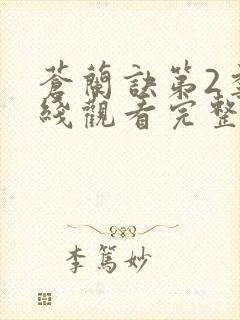 蒼蘭訣第2季
綫觀看完整
李篤妙